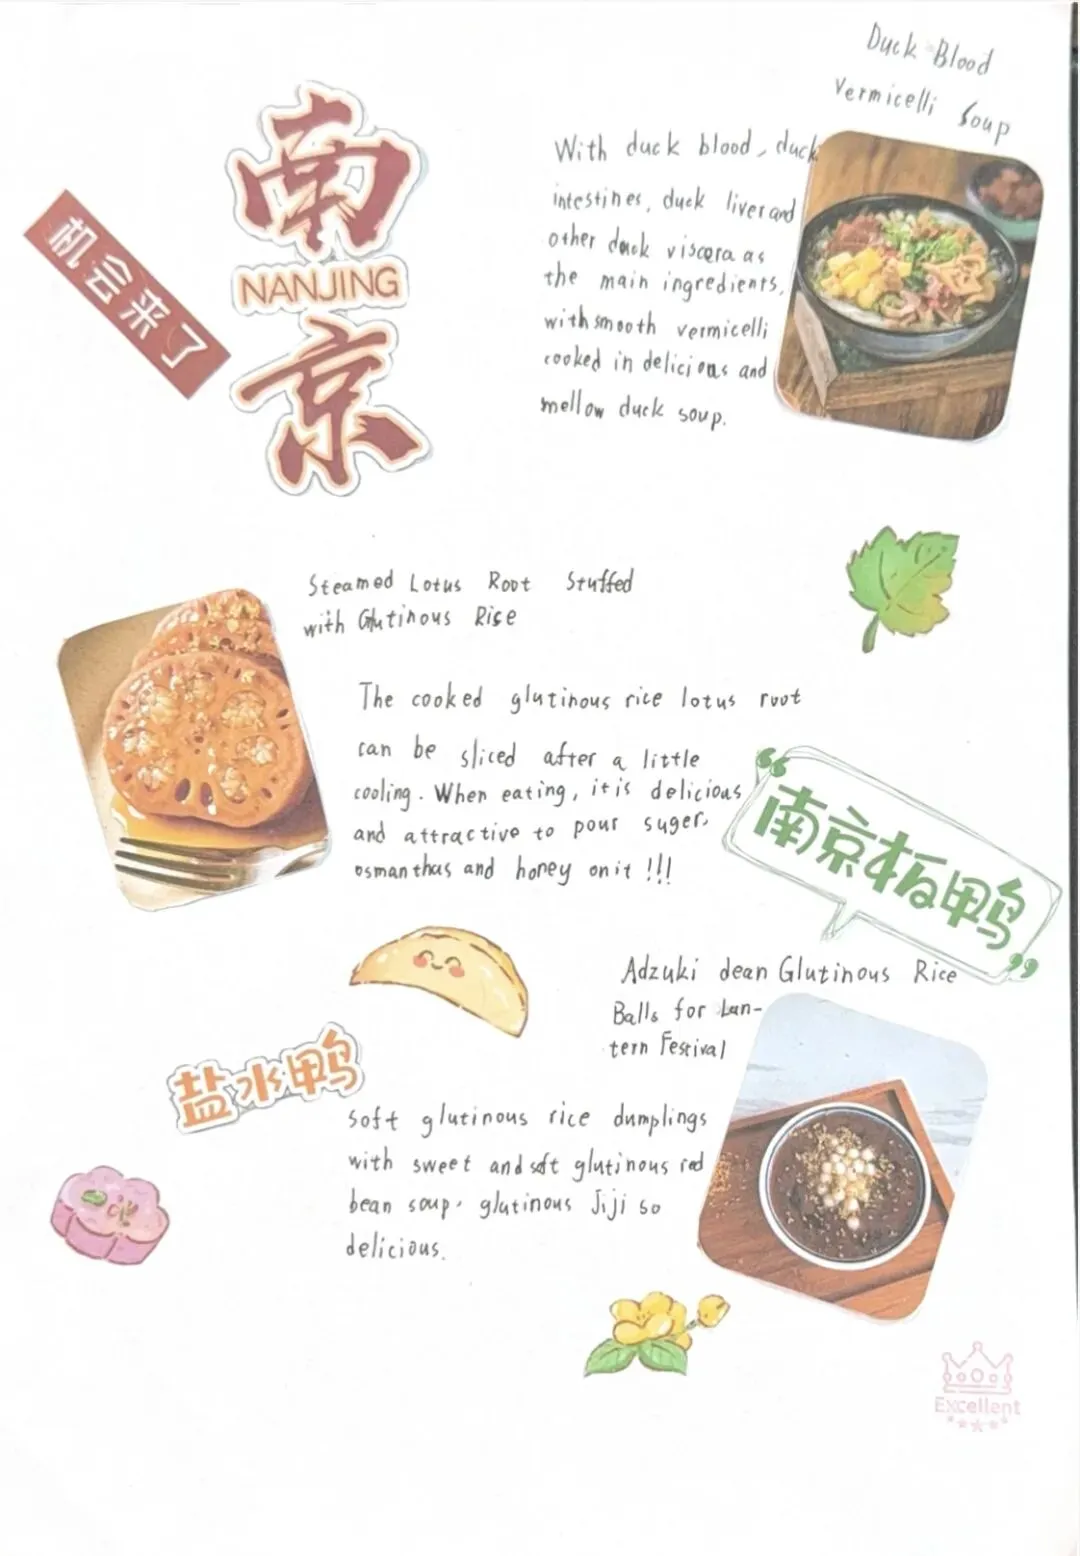 南
NANJING
京
机会来了
Duck Blood
Vermicelli Soup
With duck blood, duck
intestines, duck liver and
other duck viscera as
the main ingredients,
with smooth vermicelli
cooked in delicious and
mellow duck soup.
Steamed Lotus Root Stuffed
with Glutinous Rice
The cooked glutinous rice lotus root
can be sliced after a little
cooling. When eating, it is delicious
and attractive to pour suger,
osmanthas and honey on it !!!
“南京板鸭”
盐水鸭
Adzuki dean Glutinous Rice
Balls for Lan-
tern Festival
Soft glutinous rice dumplings
with sweet and soft glutinous red
bean soup, glutinous Jiji so
delicious.
Excellent